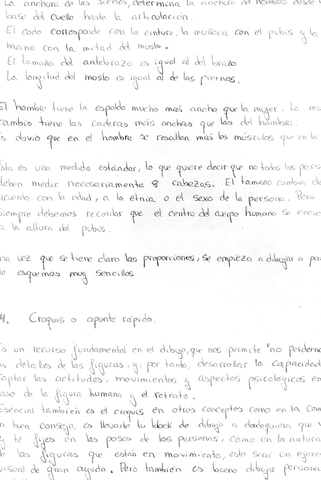 La anchura de las sienes, determina la anchura de hombros desde
base del cuello hasta la articulación.
El codo corresponde con la cintura, la muñeca con el pubis y la
mano con la mitad del muslo.
El tamaño del antebrazo es igual al del brazo
La longitud del muslo es igual al de las piernas.
El hombre tiene la espalda mucho más ancha que la mujer. La mu
cambio tiene las caderas más anchas que las del hombre.
s obvio que en el hombre se resaltan más los músculos que en la
sta es una medida estándar, lo que quiere decir que no todas las perso
deben medir necesariamente 8 cabezas. El tamaño cambia de
cuerdo con la edad, a la etnia o el sexo de la persona. Pero
siempre debemos recordar que el centro del cuerpo humano se encue
a la altura del pubis.
na vez que se tiene claro las proporciones, se empieza a dibujar a par
de esquemas muy sencillos
4. Croquis o apunte rápido.
s un recurso fundamental en el dibujo, que nos permite "no perderno
s detalles de las figuras, y, por tanto, desarrollar la capacidad
captar las actitudes, movimientos y aspectos psicológicos en
aso de la figura humana y el retrato.
Esencial también es el croquis en otros conceptos como en la com
n buen consejo, es llevarte tu block de dibujo a dondequiera que v
y te fijes en las poses de las personas, como en la natura
de las figuras que están en movimiento, esto será un ejerci
visual de gran ayuda. Pero también es bueno dibujar persona